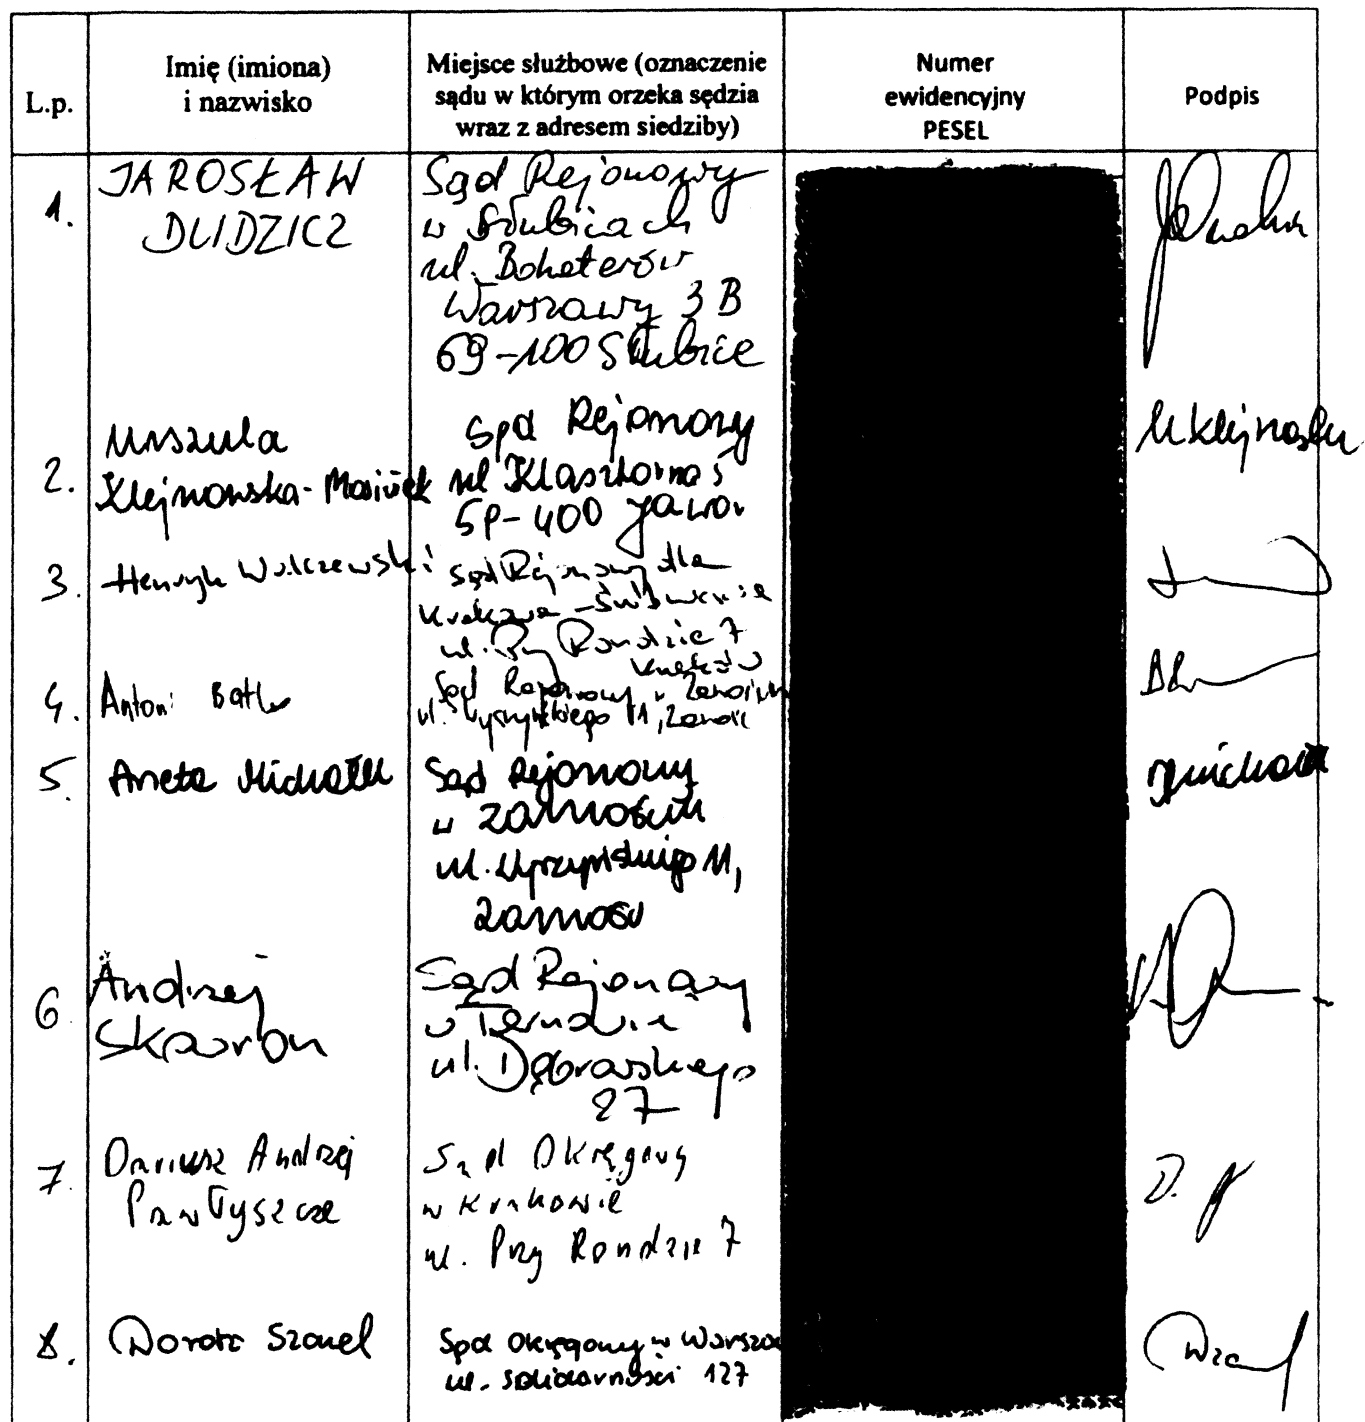 L.p.
Imię (imiona)
i nazwisko
Miejsce służbowe (oznaczenie
sądu w którym orzeka sędzia
wraz z adresem siedziby)
Numer
ewidencyjny
PESEL
Podpis
1.
JAROSŁAW
DUDZICZ
Sąd Rejonowy
w Słubicach
ul. Bohaterów
Warszawy 3 B
69-100 Słubice
2.
Urszula
Klejnowska-
Sąd Rejonowy
ul Klasztorna 5
400 Jawor
3.
Henryk Walczewski
Sąd Rejonowy dla
Krakowa -
ul. Przy Rondzie 7
Kraków
4.
Antoni
Sąd Rejonowy w Zamościu
ul. Wyszyńskiego 11, Zamość
5.
Aneta Michałek
Sąd Rejonowy
w Zamościu
ul. Wyszyńskiego 11,
Zamość
6
Andrzej
Skowron
Sąd Rejonowy
w Tarnowie
ul. Dąbrowskiego
27
7.
Dariusz Andrzej
Pawłyszcze
Sąd Okręgowy
w Krakowie
ul. Przy Rondzie 7
8.
Dorota
Sąd Okręgowy w
ul. Solidarności 127